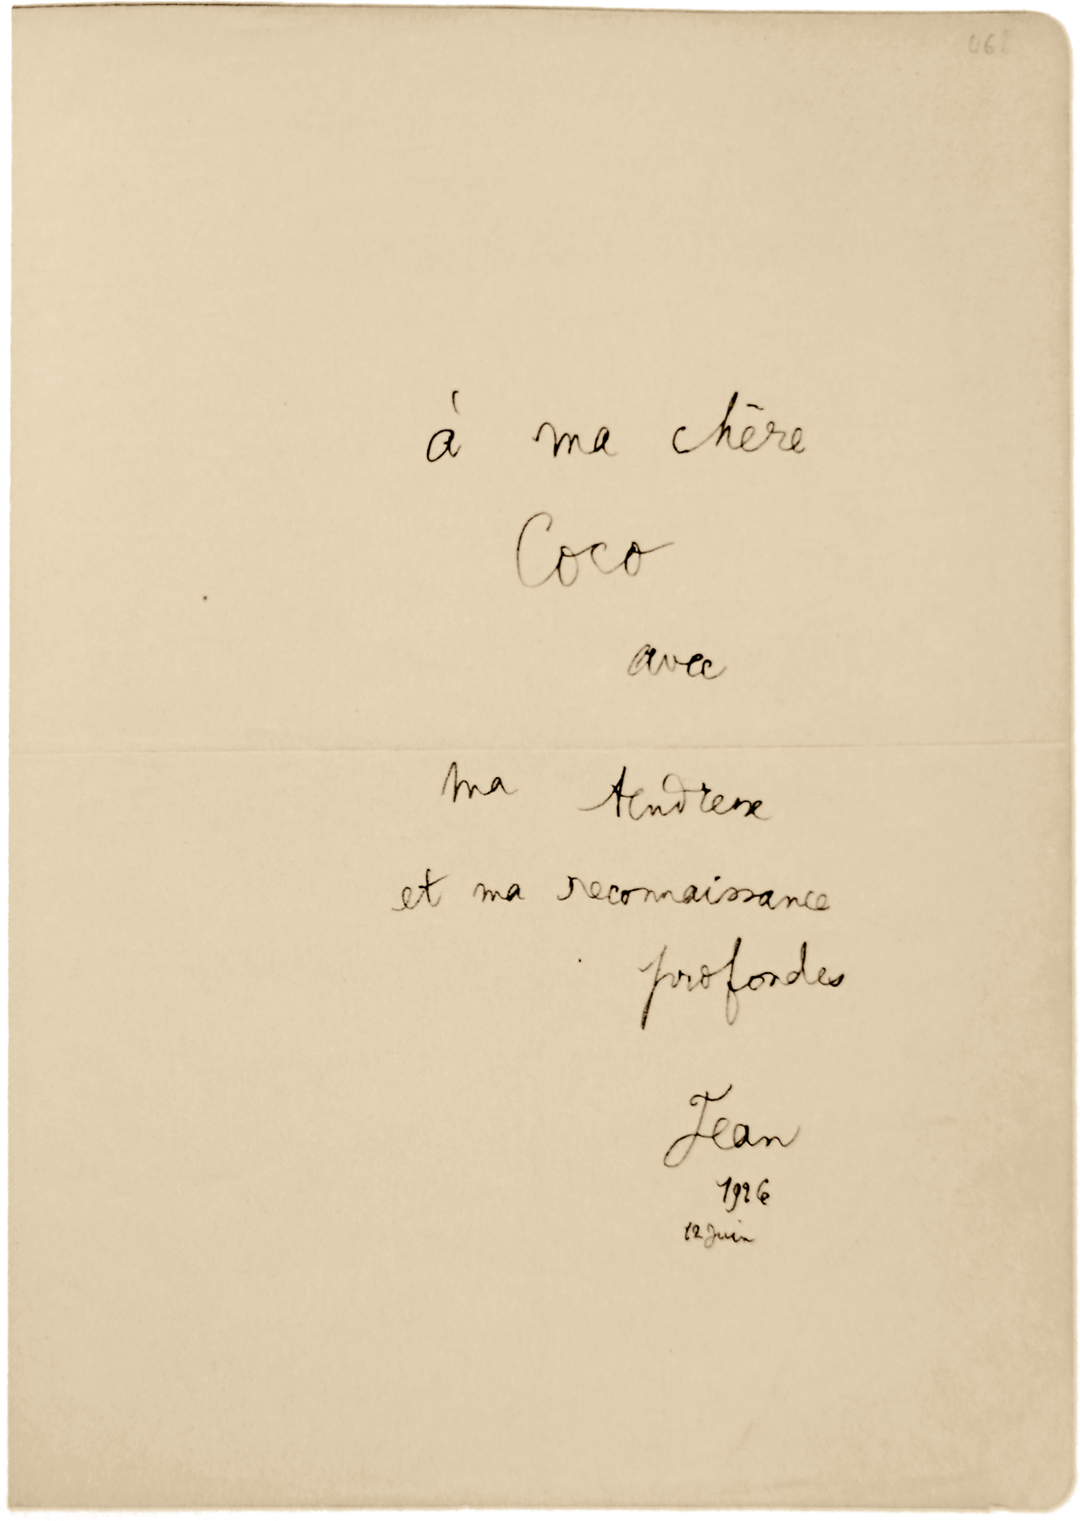 à ma chère
Coco
avec
ma tendresse
et ma reconnaissance
profondes
Jean
1926
12 Juin